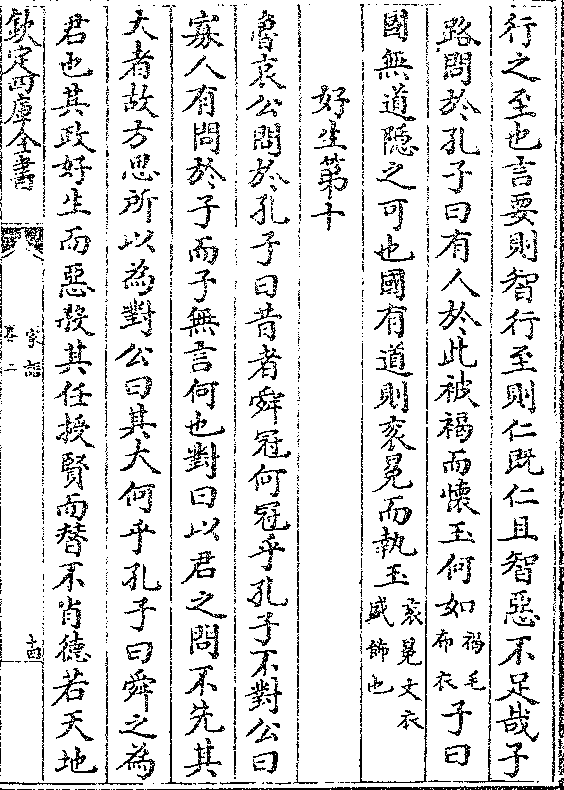 行之至也言要則智行至則仁既仁且智惡不足哉子
路問於孔子曰有人於此被褐而懷玉何如褐毛布衣子曰
國無道隱之可也國有道則衮冕而執玉衮冕文衣盛飾也
好生第十
魯哀公問於孔子曰昔者舜冠何冠乎孔子不對公曰
寡人有問於子而子無言何也對曰以君之問不先其
大者故方思所以為對公曰其大何乎孔子曰舜之為
君也其政好生而惡殺其任授賢而替不肖德若天地
欽定四庫全書
家語
卷二
十四